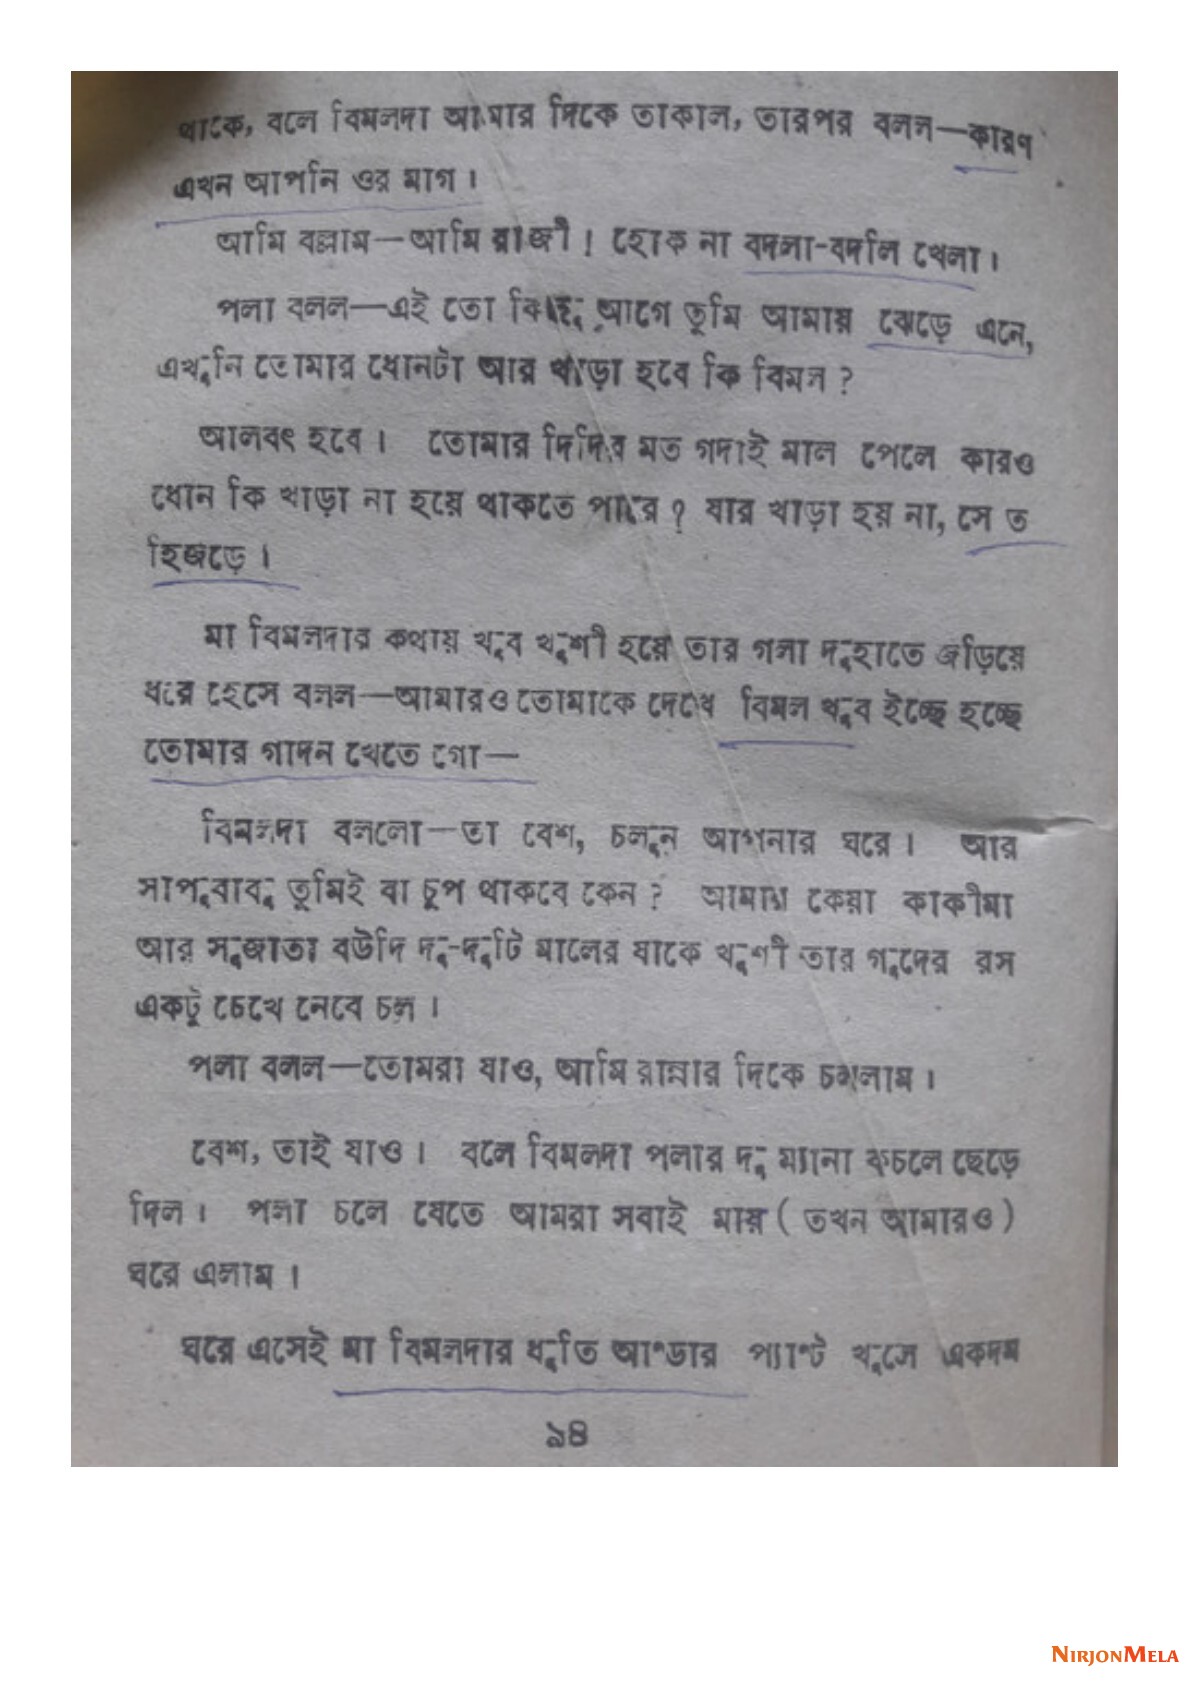 থাকে, বলে বিমলদা আমার দিকে তাকাল, তারপর বলল—কারণ
এখন আপনি ওর মাগ।
আমি বল্লাম—আমি রাজী! হোক না বদলা-বদলি খেলা।
পলা বলল—এই তো কিছু আগে তুমি আমায় ঝেড়ে এলে,
এখুনি তোমার ধোনটা আর খাড়া হবে কি বিমল?
আলবৎ হবে। তোমার দিদির মত গদাই মাল পেলে কারও
ধোন কি খাড়া না হয়ে থাকতে পারে? যার খাড়া হয় না, সে ত
হিজড়ে।
মা বিমলদার কথায় খুব খুশী হয়ে তার গলা দুহাতে জড়িয়ে
ধরে হেসে বলল—আমারও তোমাকে দেখে বিমল খুব ইচ্ছে হচ্ছে
তোমার গাদন খেতে গো—
বিমলদা বললো—তা বেশ, চলুন আপনার ঘরে। আর
সাপুবাবু তুমিই বা চুপ থাকবে কেন? আমার কেয়া কাকীমা
আর সুজাতা বউদি দু-দুটি মালের যাকে খুশী তার গুদের রস
একটু চেখে নেবে চল।
পলা বলল—তোমরা যাও, আমি রান্নার দিকে চললাম।
বেশ, তাই যাও। বলে বিমলদা পলার দু ম্যানা কচলে ছেড়ে
দিল। পলা চলে যেতে আমরা সবাই মায় (তখন আমারও)
ঘরে এলাম।
ঘরে এসেই মা বিমলদার ধুতি আণ্ডার প্যাণ্ট খুলে একদম
৯৪
NIRJONMELA